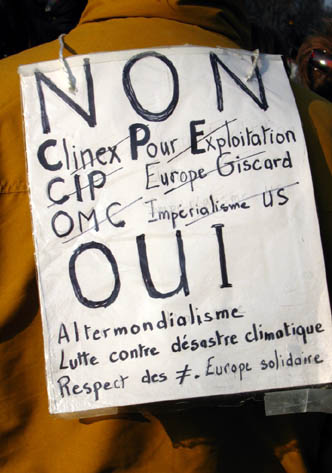 NON
Clinex Pour Exploitation
CIP Europe Giscard
OMC Impérialisme US
OUI
Altermondialisme
Lutte contre désastre climatique
Respect des ≠. Europe solidaire